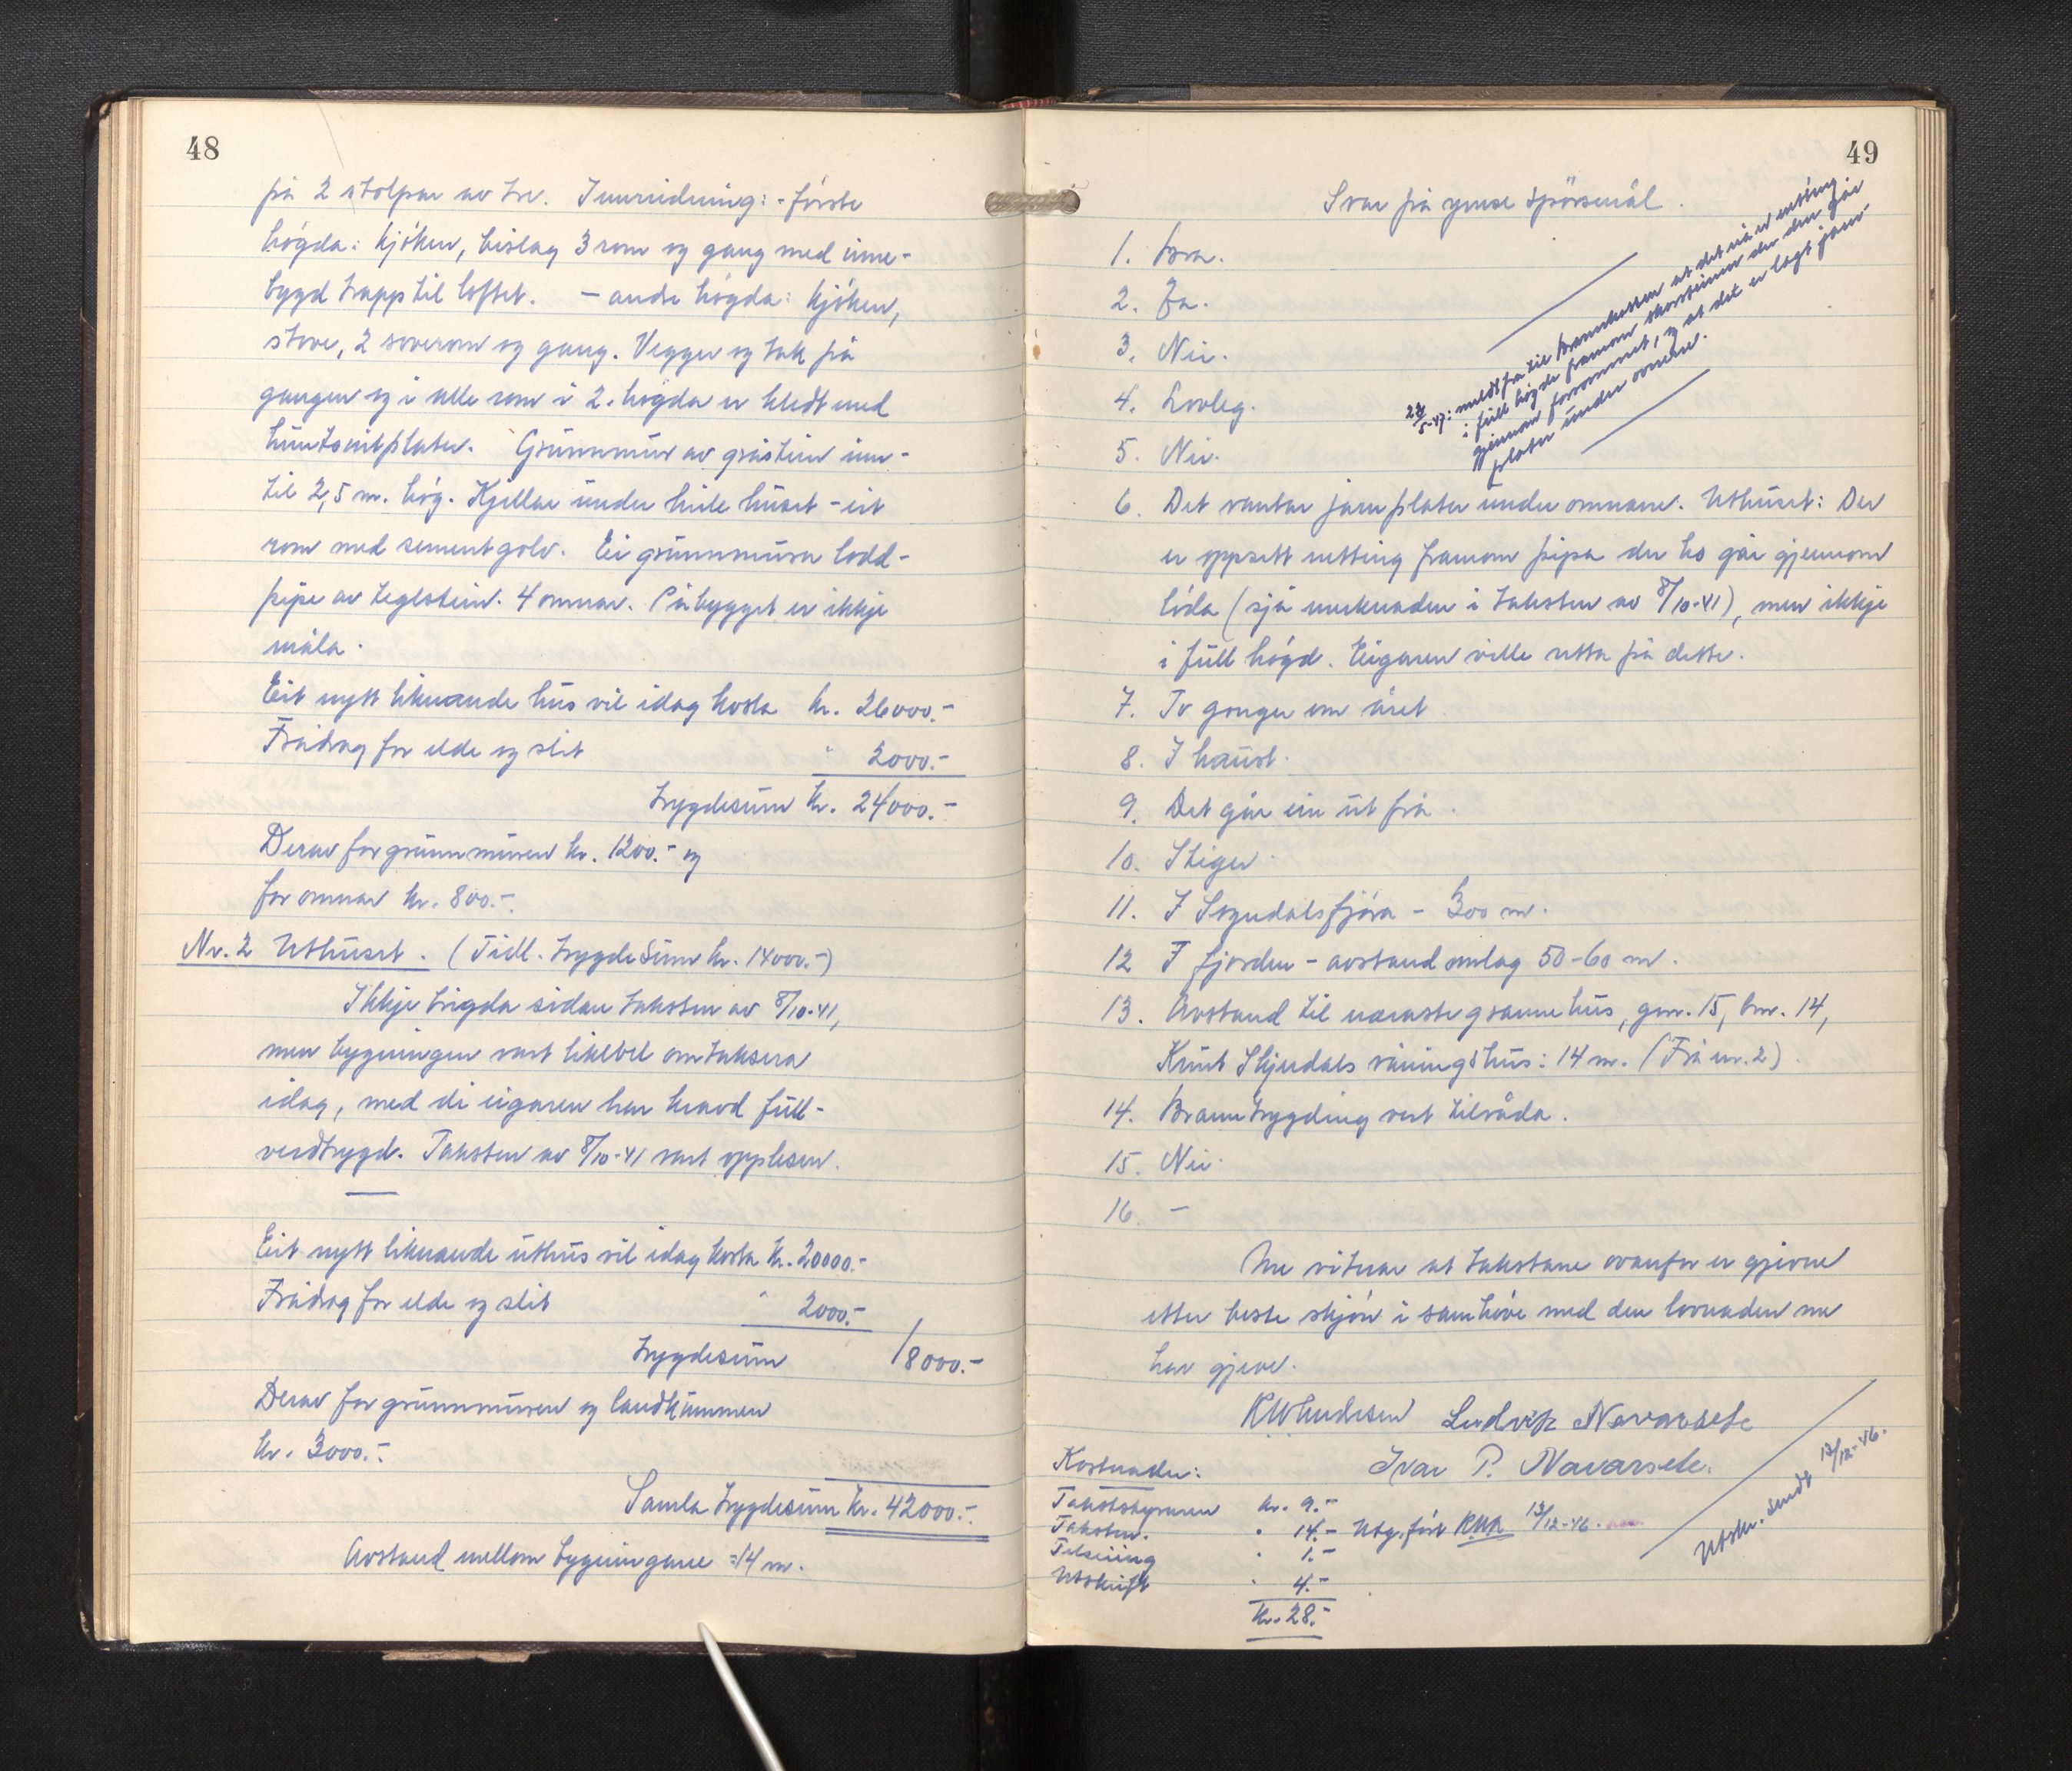 48
på 2 stolpar av tre. Innreidning: - fyrste
høgda: kjøken, bislag 3 rom og gang med inne-
bygd trapp til loftet. - andre høgda: kjøken,
stove, 2 soverom og gang. Vegger og tak på
gangen og i alle rom i 2. høgda er kledt med
huntonitplater. Grunnmur av gråstein inn-
til 2,5 m. høg. Kjellar under heile huset - eit
rom med sementgolv. Ei grunnmura lodd-
pipe av teglstein. 4 omnar. Påbygget er ikkje
måla.
Eit nytt liknande hus vil idag kosta kr. 26000.-
Frådrag for elde og slit " 2000.-
trygdesum kr. 24000.-
Derav for grunnmuren kr. 1200.- og
for omnar kr. 800.-
Nr. 2 Uthuset. (Tidl. trygdesum kr. 14000.-)
Ikkje brigda sidan taksten av 8/10-41,
men bygningen vart likevel omtaksera
idag, med di eigaren har kravd full-
verdtrygd. Taksten av 8/10-41 vart opplesen.
Eit nytt liknande uthus vil idag kosta kr. 20000.-
Frådrag for elde og slit " 2000.-
trygdesum 18000.-
Derav for grunnmuren og landkummen
kr. 3000.-
Samla trygdesum kr. 42000.-
Avstand mellom bygningane = 14 m.
49
Svar på ymse spörsmål.
1. Bra.
2. Ja.
3. Nei.
4. Lovleg.
5. Nei.
23/5-47: meldt frå til Brannkassen at det nå er netting
i full høgde framom skorsteinen der den går
gjennom forrommet, og at det er lagt jarn-
plater under omnane.
6. Det vantar jarnplater under omnane. Uthuset: Der
er oppsett netting framom pipa der ho går gjennom
löda (sjå merknaden i taksten av 8/10-41), men ikkje
i full høgd. Eigaren ville retta på dette.
7. To gonger om året.
8. I haust.
9. Det går ein ut frå.
10. Stiger.
11. I Sogndalsfjøra - 300 m.
12 I fjorden - avstand omlag 50-60 m.
13. Avstand til næraste grannehus, gnr. 15, bnr. 14,
Knut Skjeldals våningshus: 14 m. (Frå nr. 2).
14. Branntrygding vert tilråda.
15. Nei.
16. -
Me vitnar at takstane ovanfor er gjevne
etter beste skjön i samhøve med den lovnaden me
har gjeve.
Ludvik Navarsete
Ivar P. Navarsete.
Kostnader:
Takststyraren kr. 9.-
Taksten. " 14.- Utg. ført 13/12-46.
" 1.-
Utskrift " 4.-
kr. 28.-
Utskr. sendt 13/12-46.